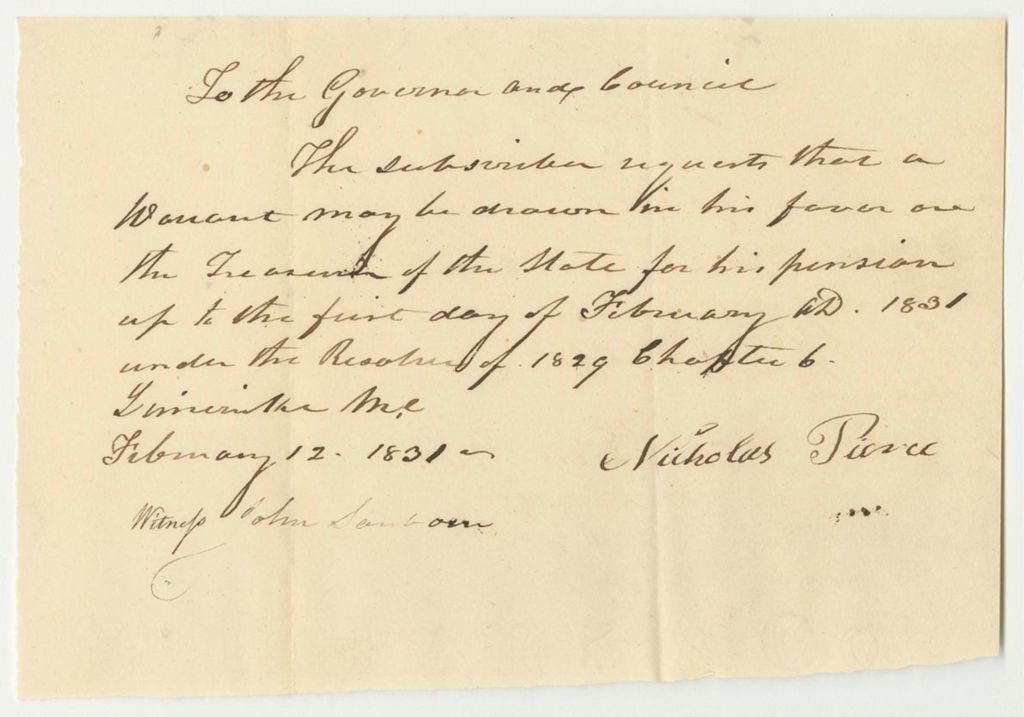 To the Governor and Council
The subscriber requests that a
Warrant may be drawn in his favor on
the Treasurer of the State for his pension
up to the first day of February AD. 1831
under the Resolve of 1829 Chapter 6.
Limerick Me
February 12. 1831
Nicholas Pierce
Witness John Sanborn